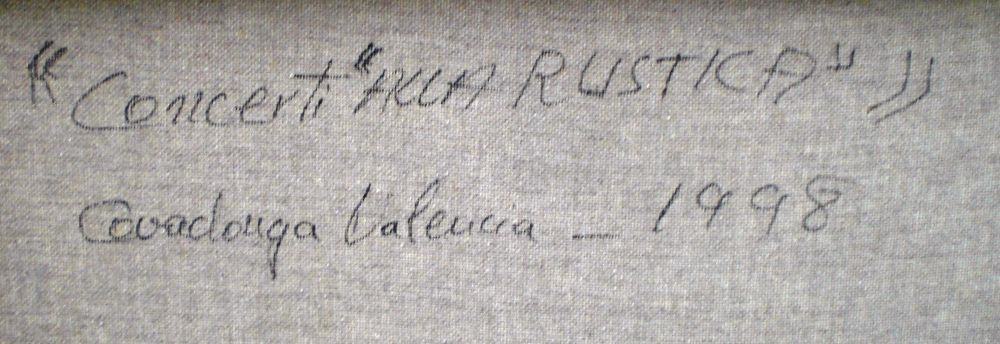 “Concerti “ALLA RUSTICA” ”
Covadonga Valencia _ 1998